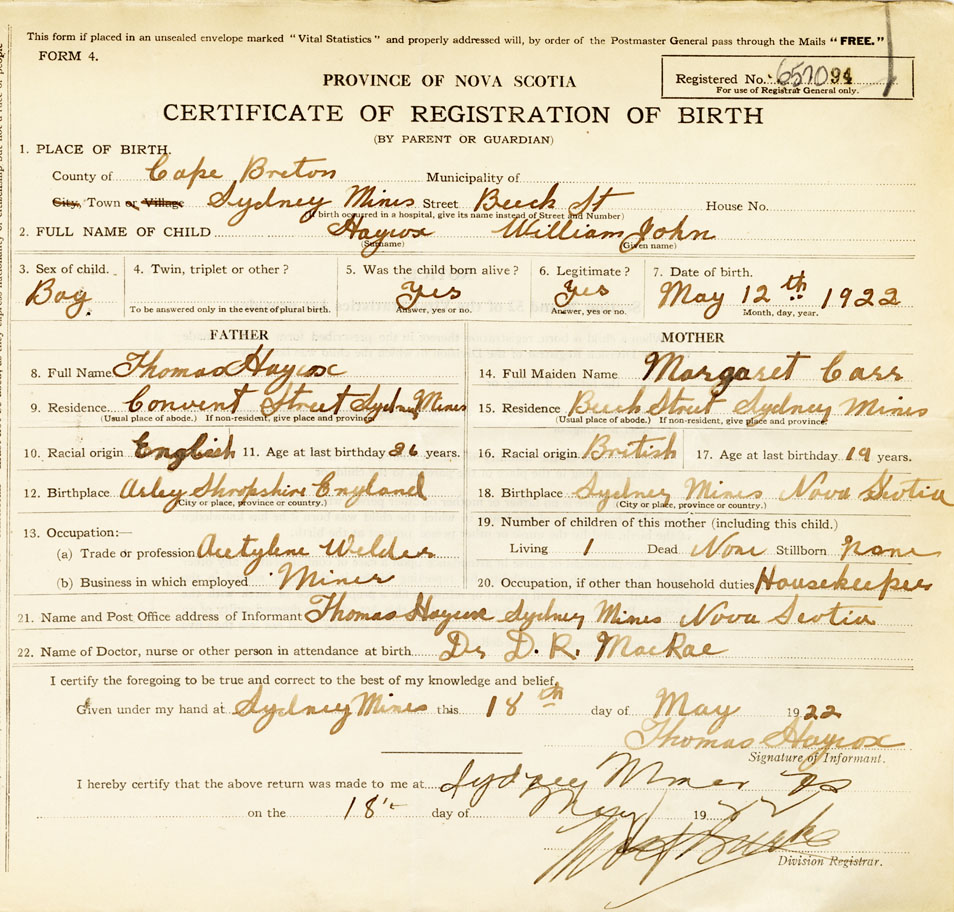 This form if placed in an unsealed envelope marked "Vital Statistics" and properly addressed will, by order of the Postmaster General pass through the Mails "FREE."
FORM 4.
Registered No. 94
For use of Registrar General only.
PROVINCE OF NOVA SCOTIA
CERTIFICATE OF REGISTRATION OF BIRTH
(BY PARENT OR GUARDIAN)
1. PLACE OF BIRTH.
County of Cape Breton Municipality of
City, Town or Village Sydney Mines Street Beech St House No.
(If birth occurred in a hospital, give its name instead of Street and Number)
2. FULL NAME OF CHILD Haycox William John
(Surname) (Given name)
3. Sex of child. 4. Twin, triplet or other? 5. Was the child born alive? 6. Legitimate? 7. Date of birth.
Boy. Yes Yes May 12th 1922
To be answered only in the event of plural birth. Answer, yes or no. Answer, yes or no. Month, day, year.
FATHER
8. Full Name Thomas Haycox
9. Residence Convent Street Sydney Mines
(Usual place of abode.) If non-resident, give place and province.
10. Racial origin English 11. Age at last birthday 26 years.
12. Birthplace Arley Shropshire England
(City or place, province or country.)
13. Occupation:—
(a) Trade or profession Acetylene Welder
(b) Business in which employed Miner
MOTHER
14. Full Maiden Name Margaret Carr
15. Residence Beech Street Sydney Mines
(Usual place of abode.) If non-resident, give place and province.
16. Racial origin British 17. Age at last birthday 19 years.
18. Birthplace Sydney Mines Nova Scotia
(City or place, province or country.)
19. Number of children of this mother (including this child.)
Living 1 Dead None Stillborn None
20. Occupation, if other than household duties Housekeeper
21. Name and Post Office address of Informant Thomas Haycox Sydney Mines Nova Scotia
22. Name of Doctor, nurse or other person in attendance at birth Dr D. R. MacRae
I certify the foregoing to be true and correct to the best of my knowledge and belief.
Given under my hand at Sydney Mines this 18th day of May 1922
Thomas Haycox
Signature of Informant.
I hereby certify that the above return was made to me at Sydney Mines
on the 18th day of May 1922
Division Registrar.